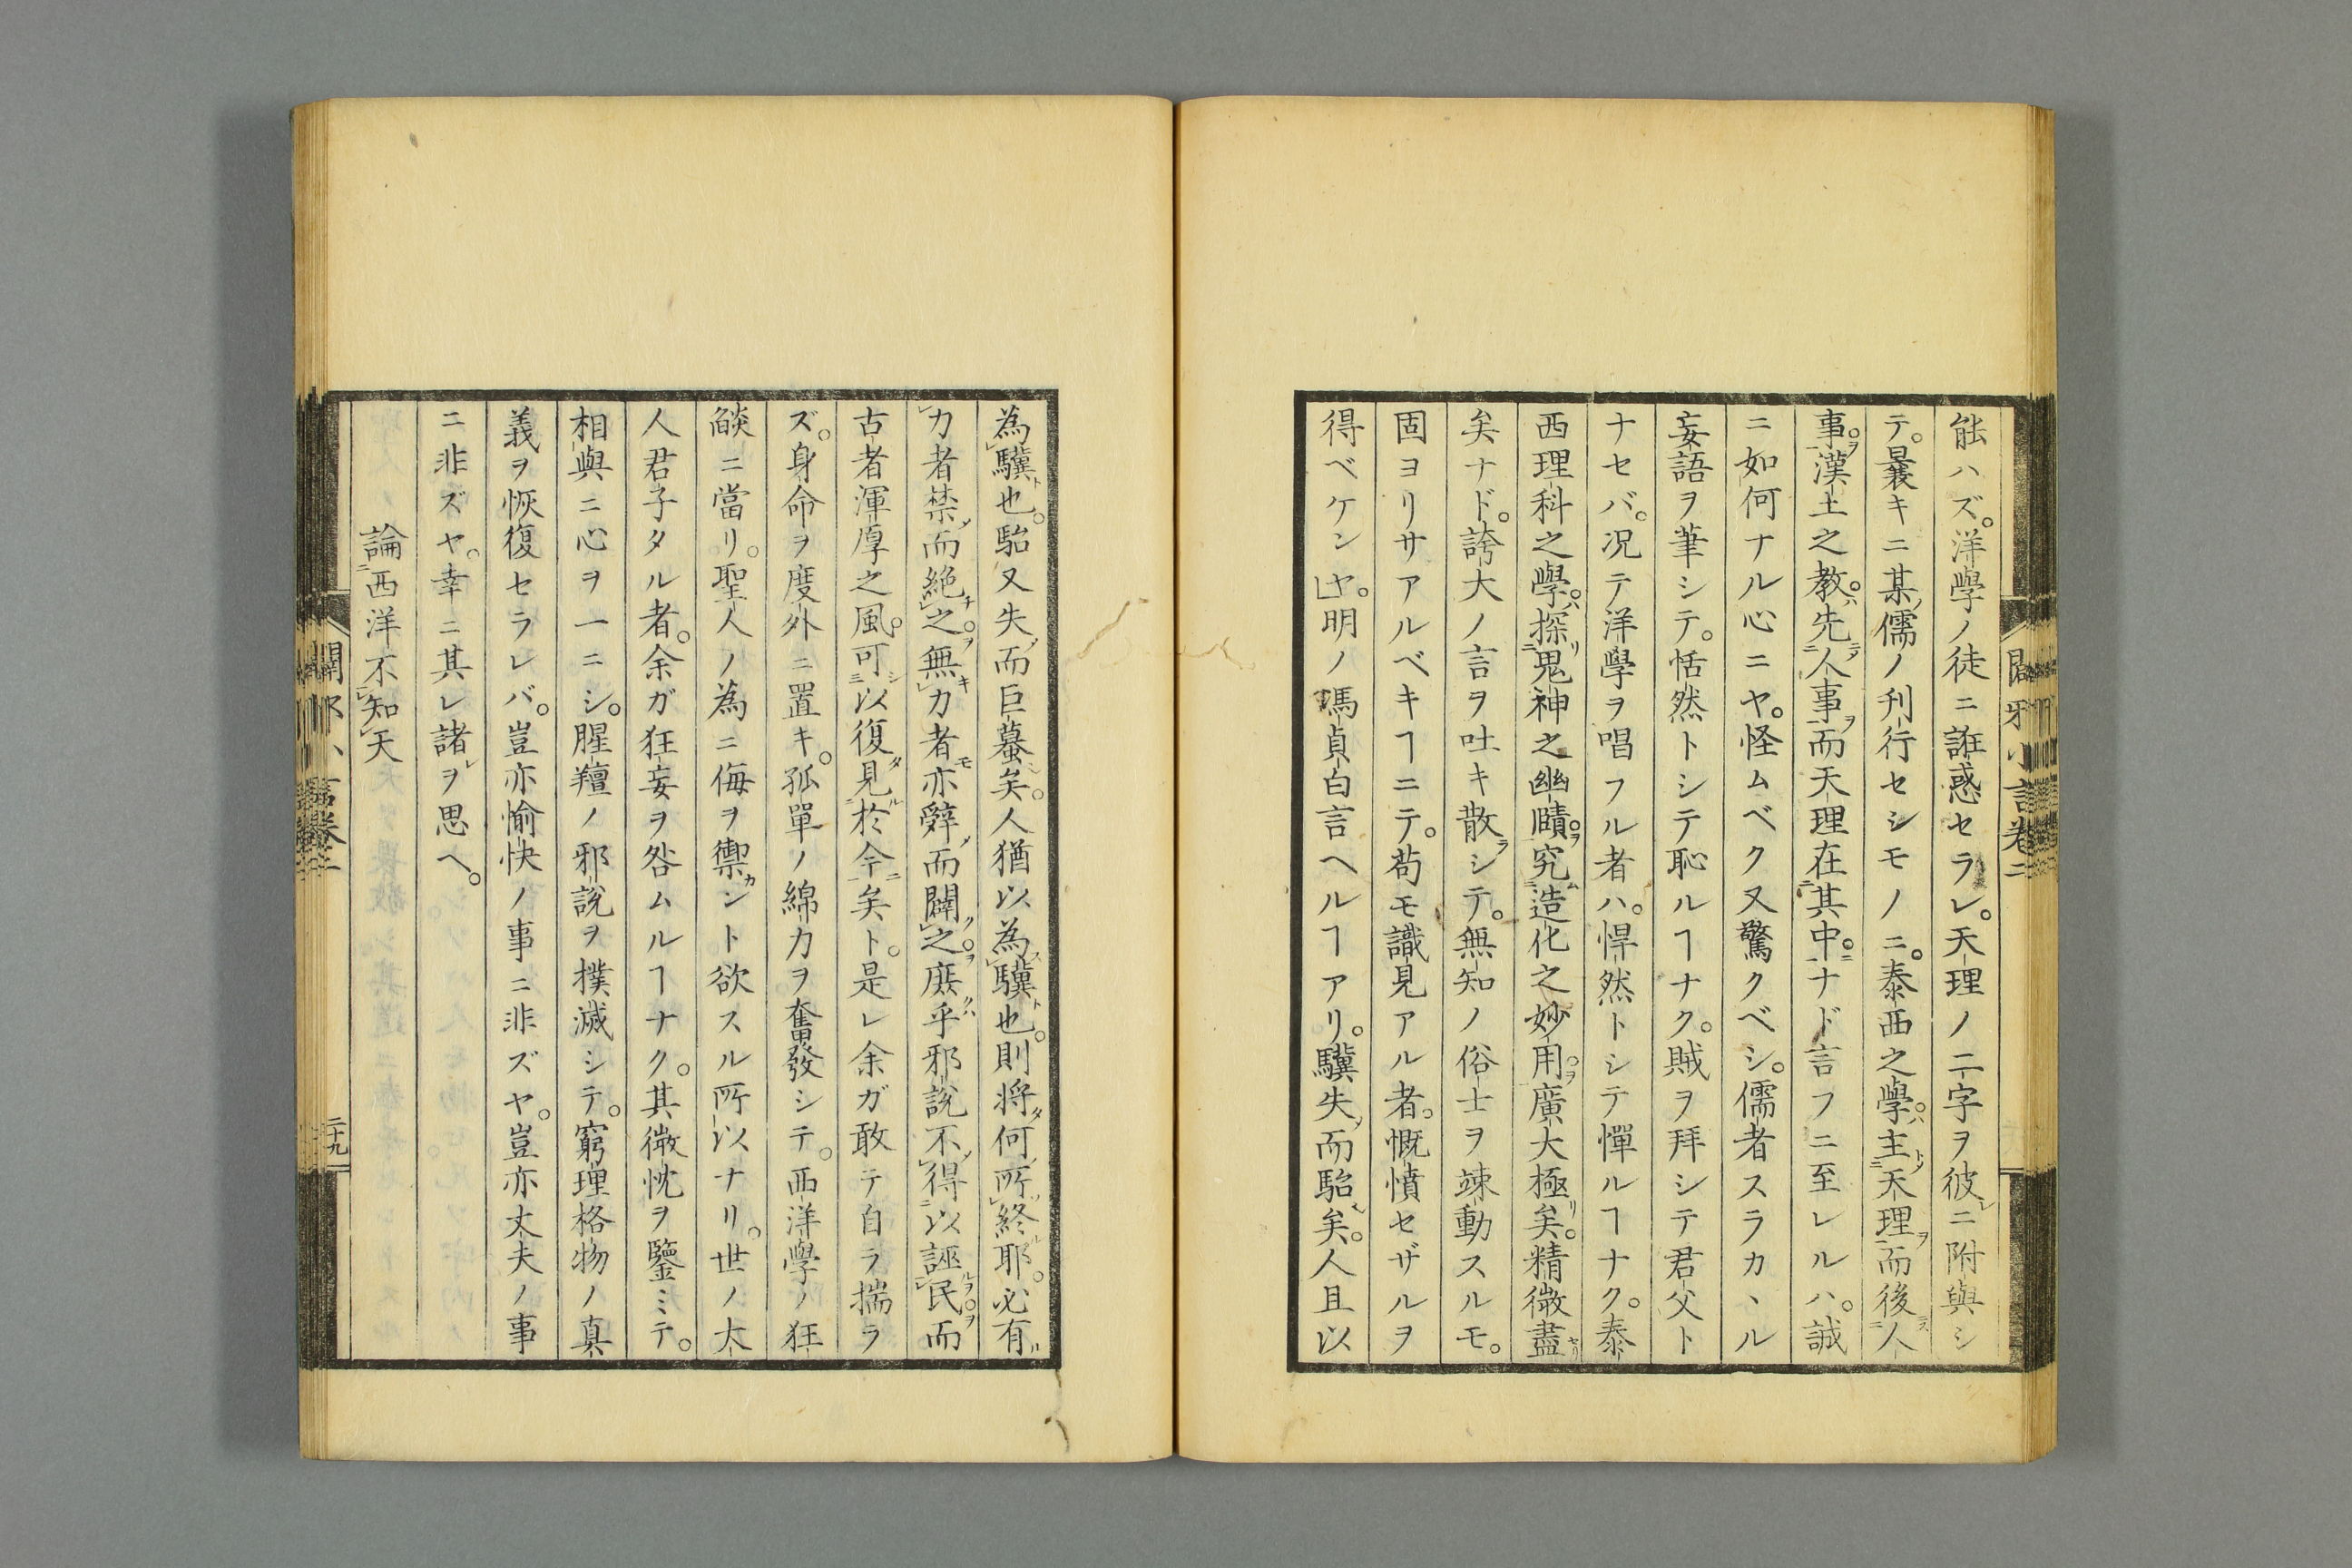 能ハズ。洋學ノ徒ニ誑惑セラレ。天理ノ二字ヲ彼レニ附與シ
テ。曩キニ某儒ノ刊行セシモノニ。泰西之學。主天理而後人
事。漢土之教。先人事而天理在其中。ナド言フニ至レルハ。誠
ニ如何ナル心ニヤ。怪ムベク又驚クベシ。儒者スラカヽル
妄語ヲ筆シテ。恬然トシテ恥ルヿナク。賊ヲ拜シテ君父ト
ナセバ。况テ洋學ヲ唱フル者ハ。悍然トシテ憚ルヿナク。泰
西理科之學。探鬼神之幽賾。究造化之妙用。廣大極矣。精微盡
矣ナド。誇大ノ言ヲ吐キ散ラシテ。無知ノ俗士ヲ竦動スルモ。
固ヨリサアルベキヿニテ。苟モ識見アル者。慨憤セザルヲ
得ベケンヤ。明ノ馮貞白言ヘルヿアリ。驥失而駘矣。人且以
為驥也。駘又失而巨蟇矣。人猶以為驥也。則将何所終耶。必有
力者禁而絶之。無力者亦辭而闢之。庶乎邪說不得以誣民。而
古者渾厚之風。可以復見於今矣ト。是レ余ガ敢テ自ラ揣ラ
ズ。身命ヲ度外ニ置キ。孤單ノ綿力ヲ奮發シテ。西洋學ノ狂
燄ニ當リ。聖人ノ為ニ侮ヲ禦カント欲スル所以ナリ。世ノ大
人君子タル者。余ガ狂妄ヲ咎ムルヿナク。其微忱ヲ鑒ミテ。
相與ニ心ヲ一ニシ。腥羶ノ邪說ヲ撲滅シテ。窮理格物ノ真
義ヲ恢復セラレバ。豈亦愉快ノ事ニ非ズヤ。豈亦丈夫ノ事
ニ非ズヤ。幸ニ其レ諸レヲ思ヘ。
論西洋不知天
闢邪小言卷二
二十九